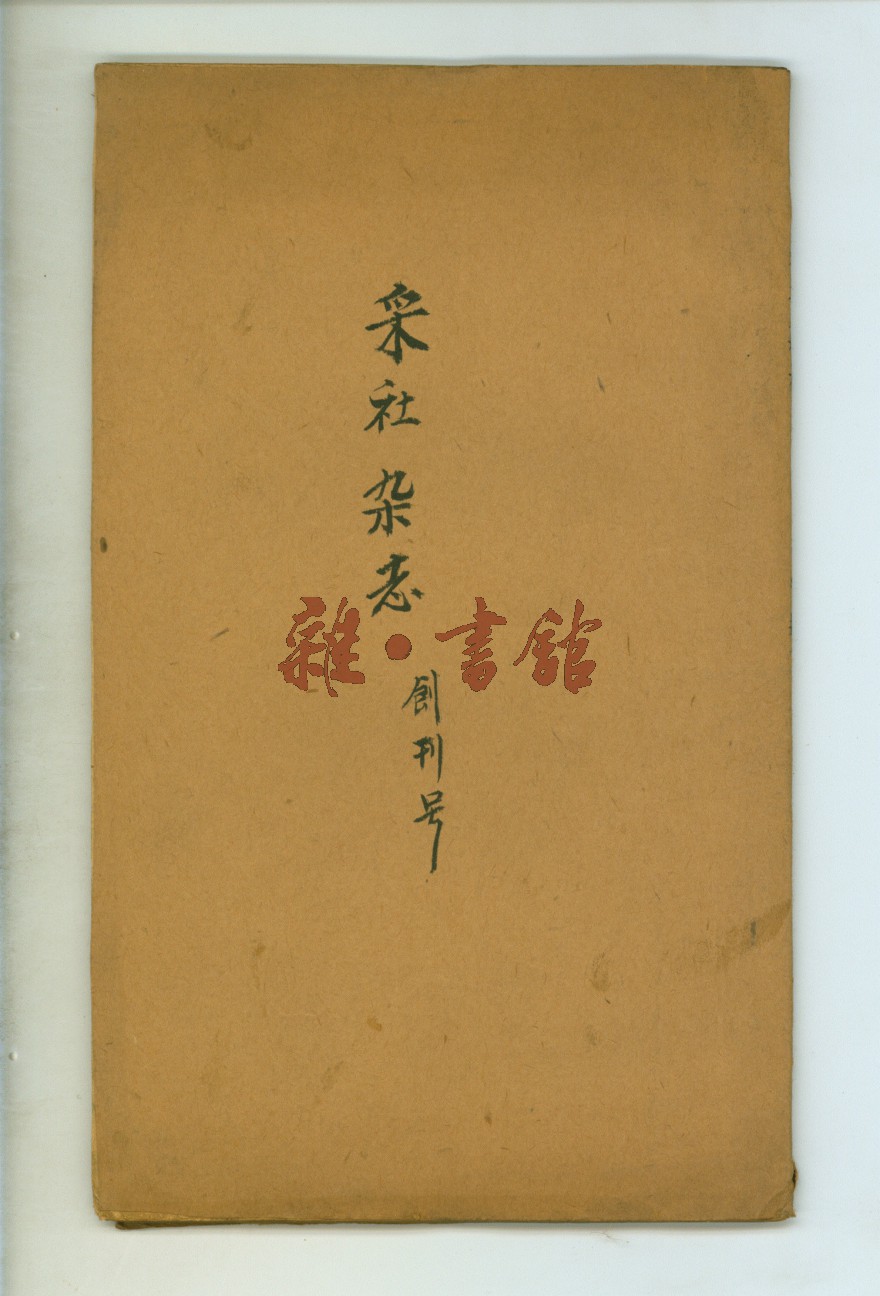 采社杂志
創刊号
雜·書館